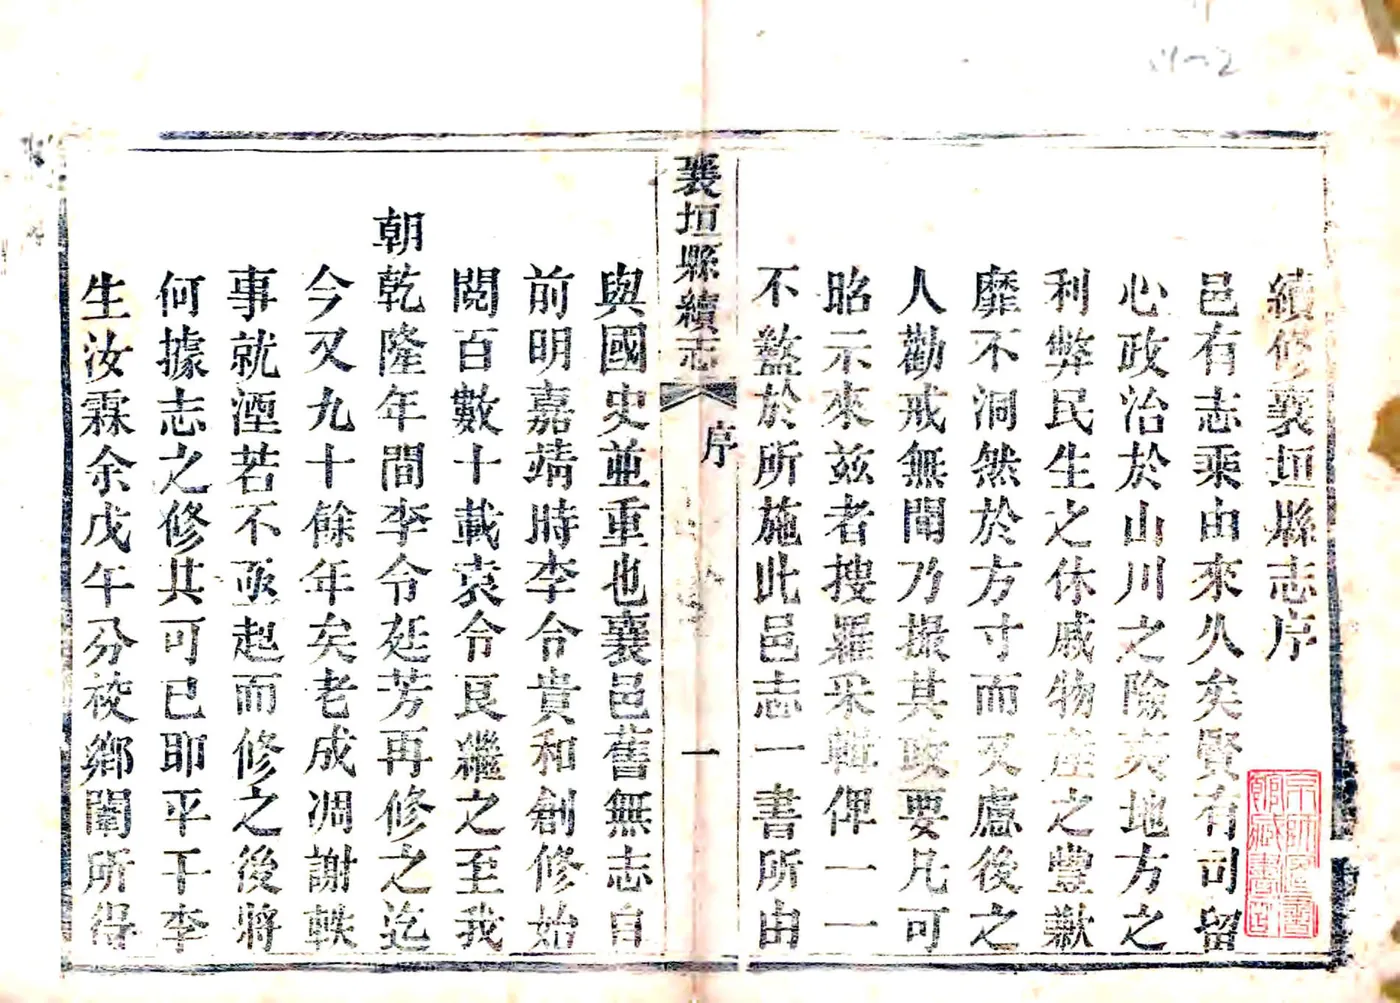 續修襄垣縣志序
邑有志乘由來久矣賢有司留
心政治於山川之險夷地方之
利弊民生之休戚物產之豐歉
靡不洞然於方寸而又慮後之
人勸戒無聞乃撮其政要凡可
昭示來茲者搜羅采輯俾一一
不盩於所施此邑志一書所由
襄垣縣續志
序
一
與國史並重也襄邑舊無志自
前明嘉靖時李令貴和創修始
閱百數十載袁令良繼之至我
朝乾隆年間李令廷芳再修之迄
今又九十餘年矣老成凋謝軼
事就湮若不亟起而修之後將
何據志之修其可已耶平干李
生汝霖余戊午分校鄉闈所得